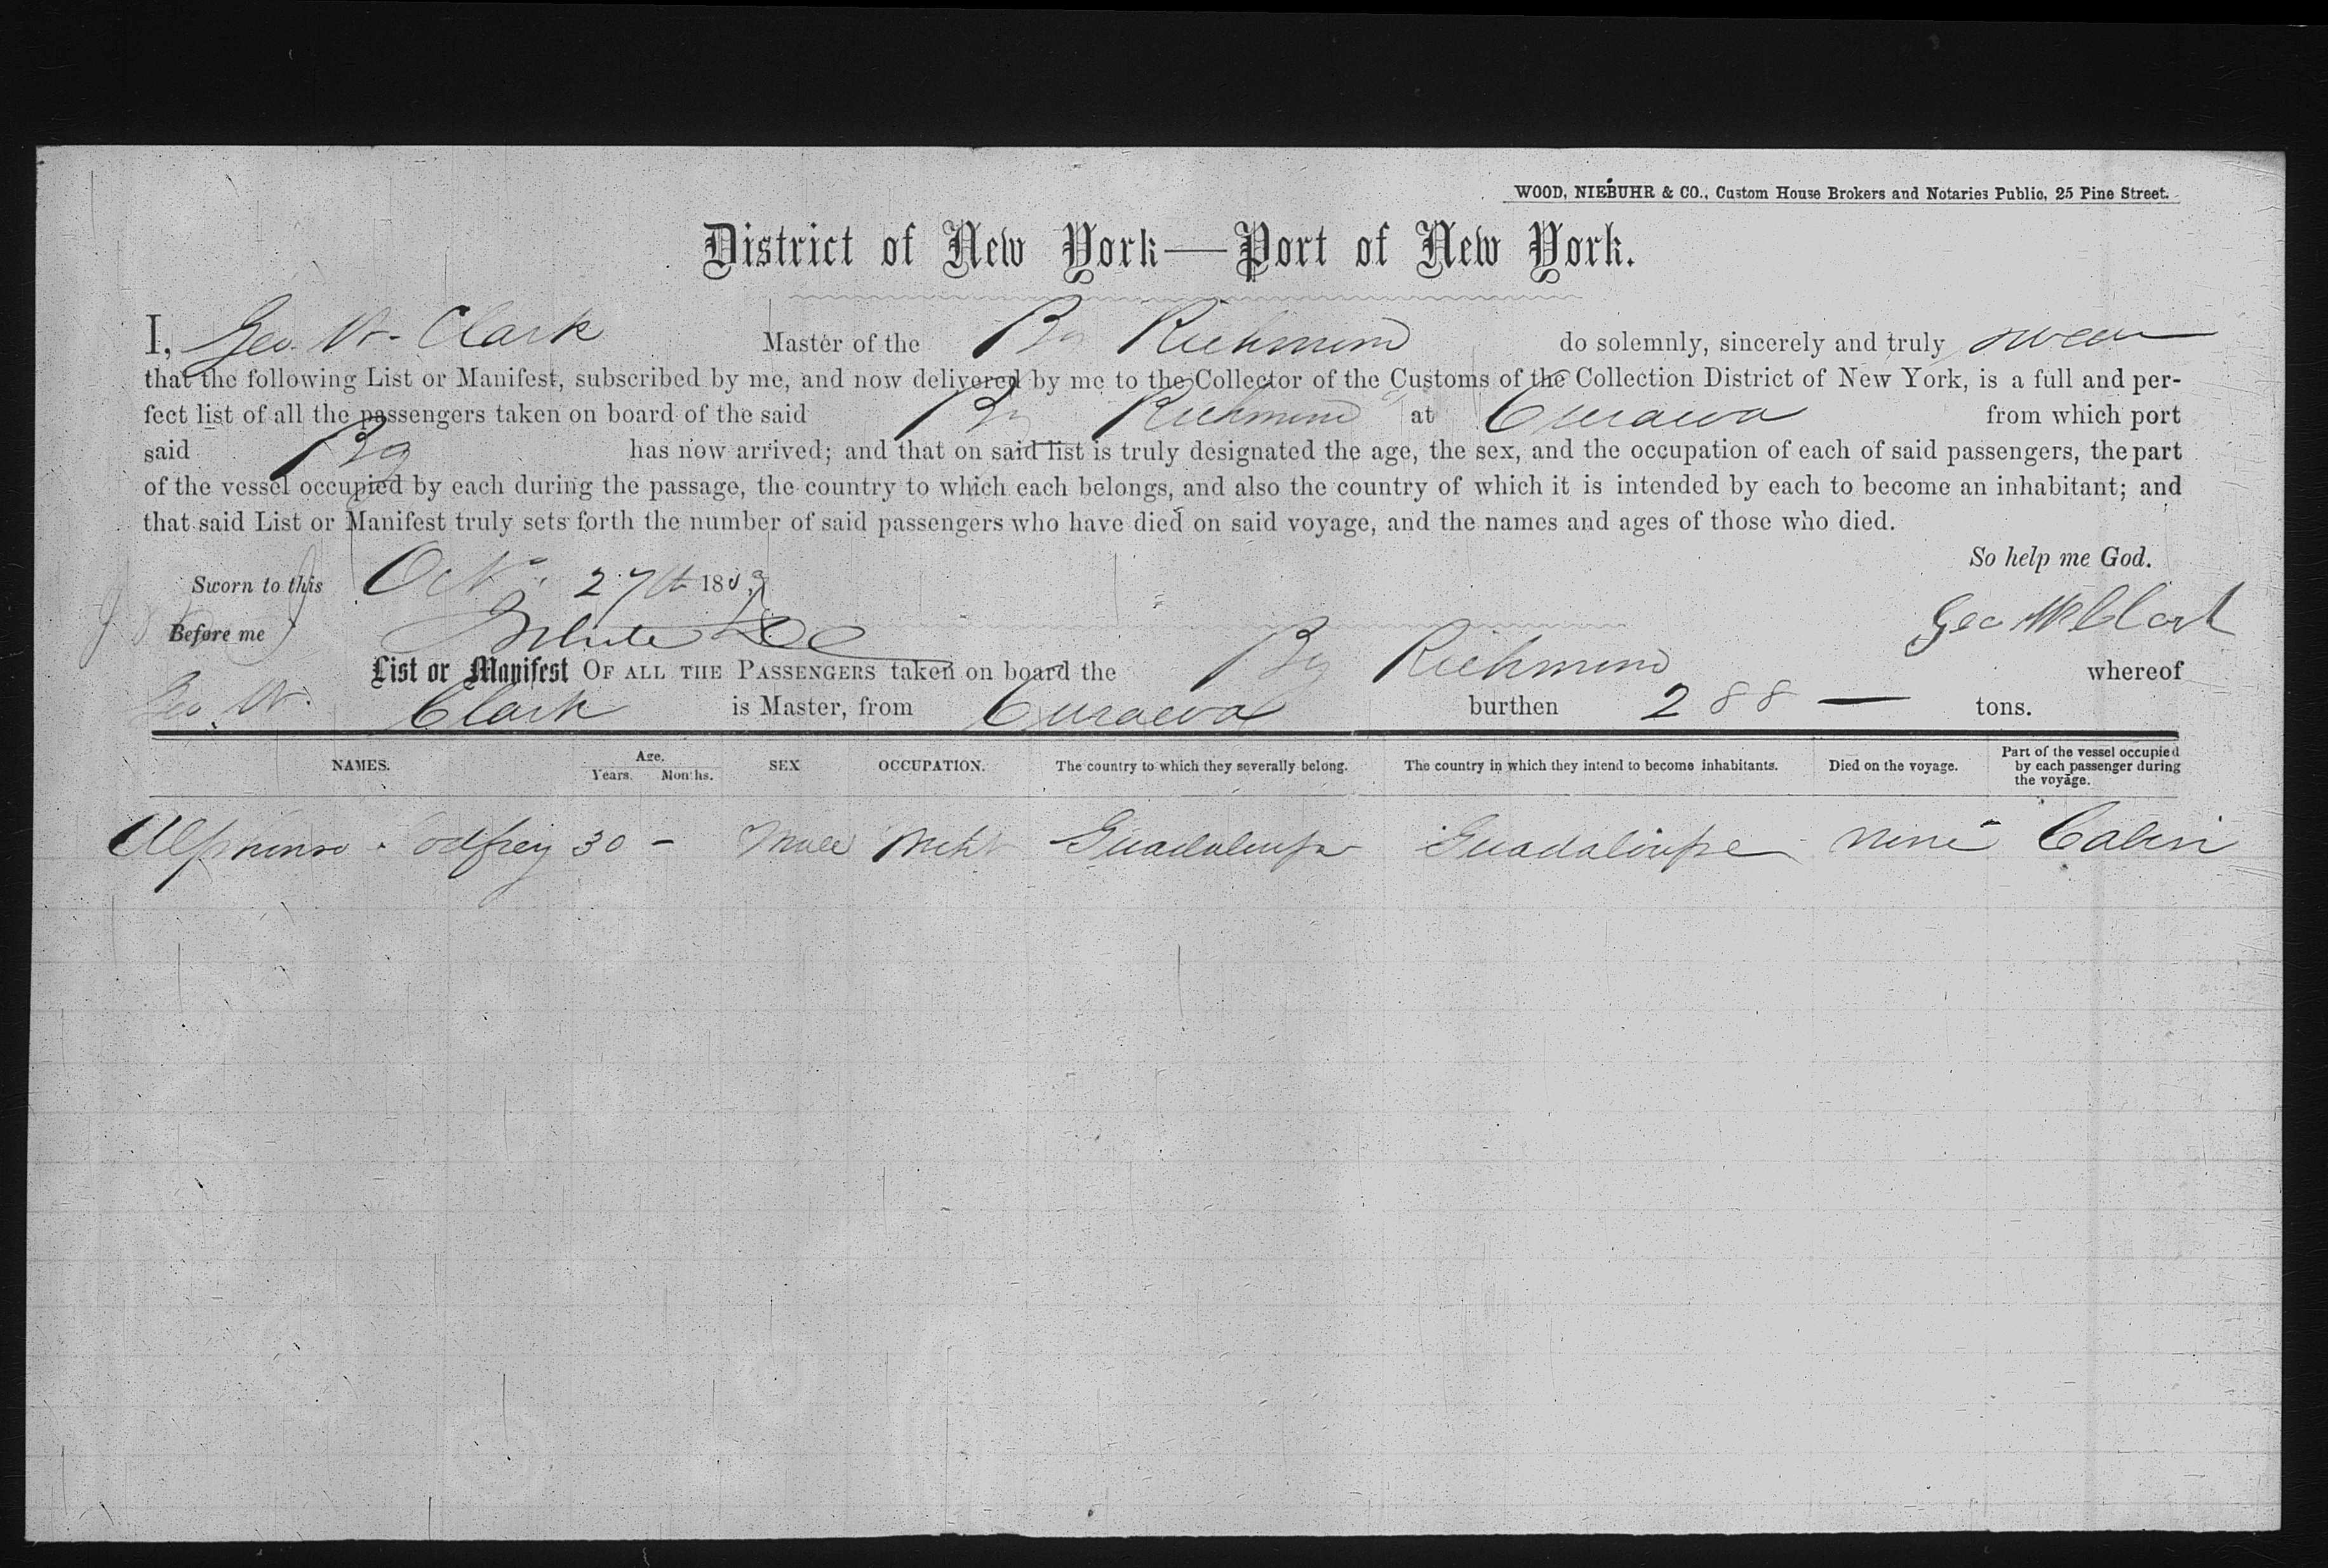 WOOD, NIEBUHR & CO., Custom House Brokers and Notaries Public, 25 Pine Street.
District of New York—Port of New York.
I, Geo. W. Clark Master of the Bg Richmond do solemnly, sincerely and truly swear
that the following List or Manifest, subscribed by me, and now delivered by me to the Collector of the Customs of the Collection District of New York, is a full and per-
fect list of all the passengers taken on board of the said Bg Richmond at Curacoa from which port
said Bg has now arrived; and that on said list is truly designated the age, the sex, and the occupation of each of said passengers, the part
of the vessel occupied by each during the passage, the country to which each belongs, and also the country of which it is intended by each to become an inhabitant; and
that said List or Manifest truly sets forth the number of said passengers who have died on said voyage, and the names and ages of those who died.
So help me God.
Sworn to this Oct. 27th 18
Before me Geo W Clark
List or Manifest OF ALL THE PASSENGERS taken on board the Bg Richmond whereof
Geo. W. Clark is Master, from Curacoa burthen 288 — tons.
NAMES. Age. Years. Months. SEX OCCUPATION. The country to which they severally belong. The country in which they intend to become inhabitants. Died on the voyage. Part of the vessel occupied by each passenger during the voyage.
Alphonso Godfrey 30 - Male Mcht Guadaloupe Guadaloupe none Cabin